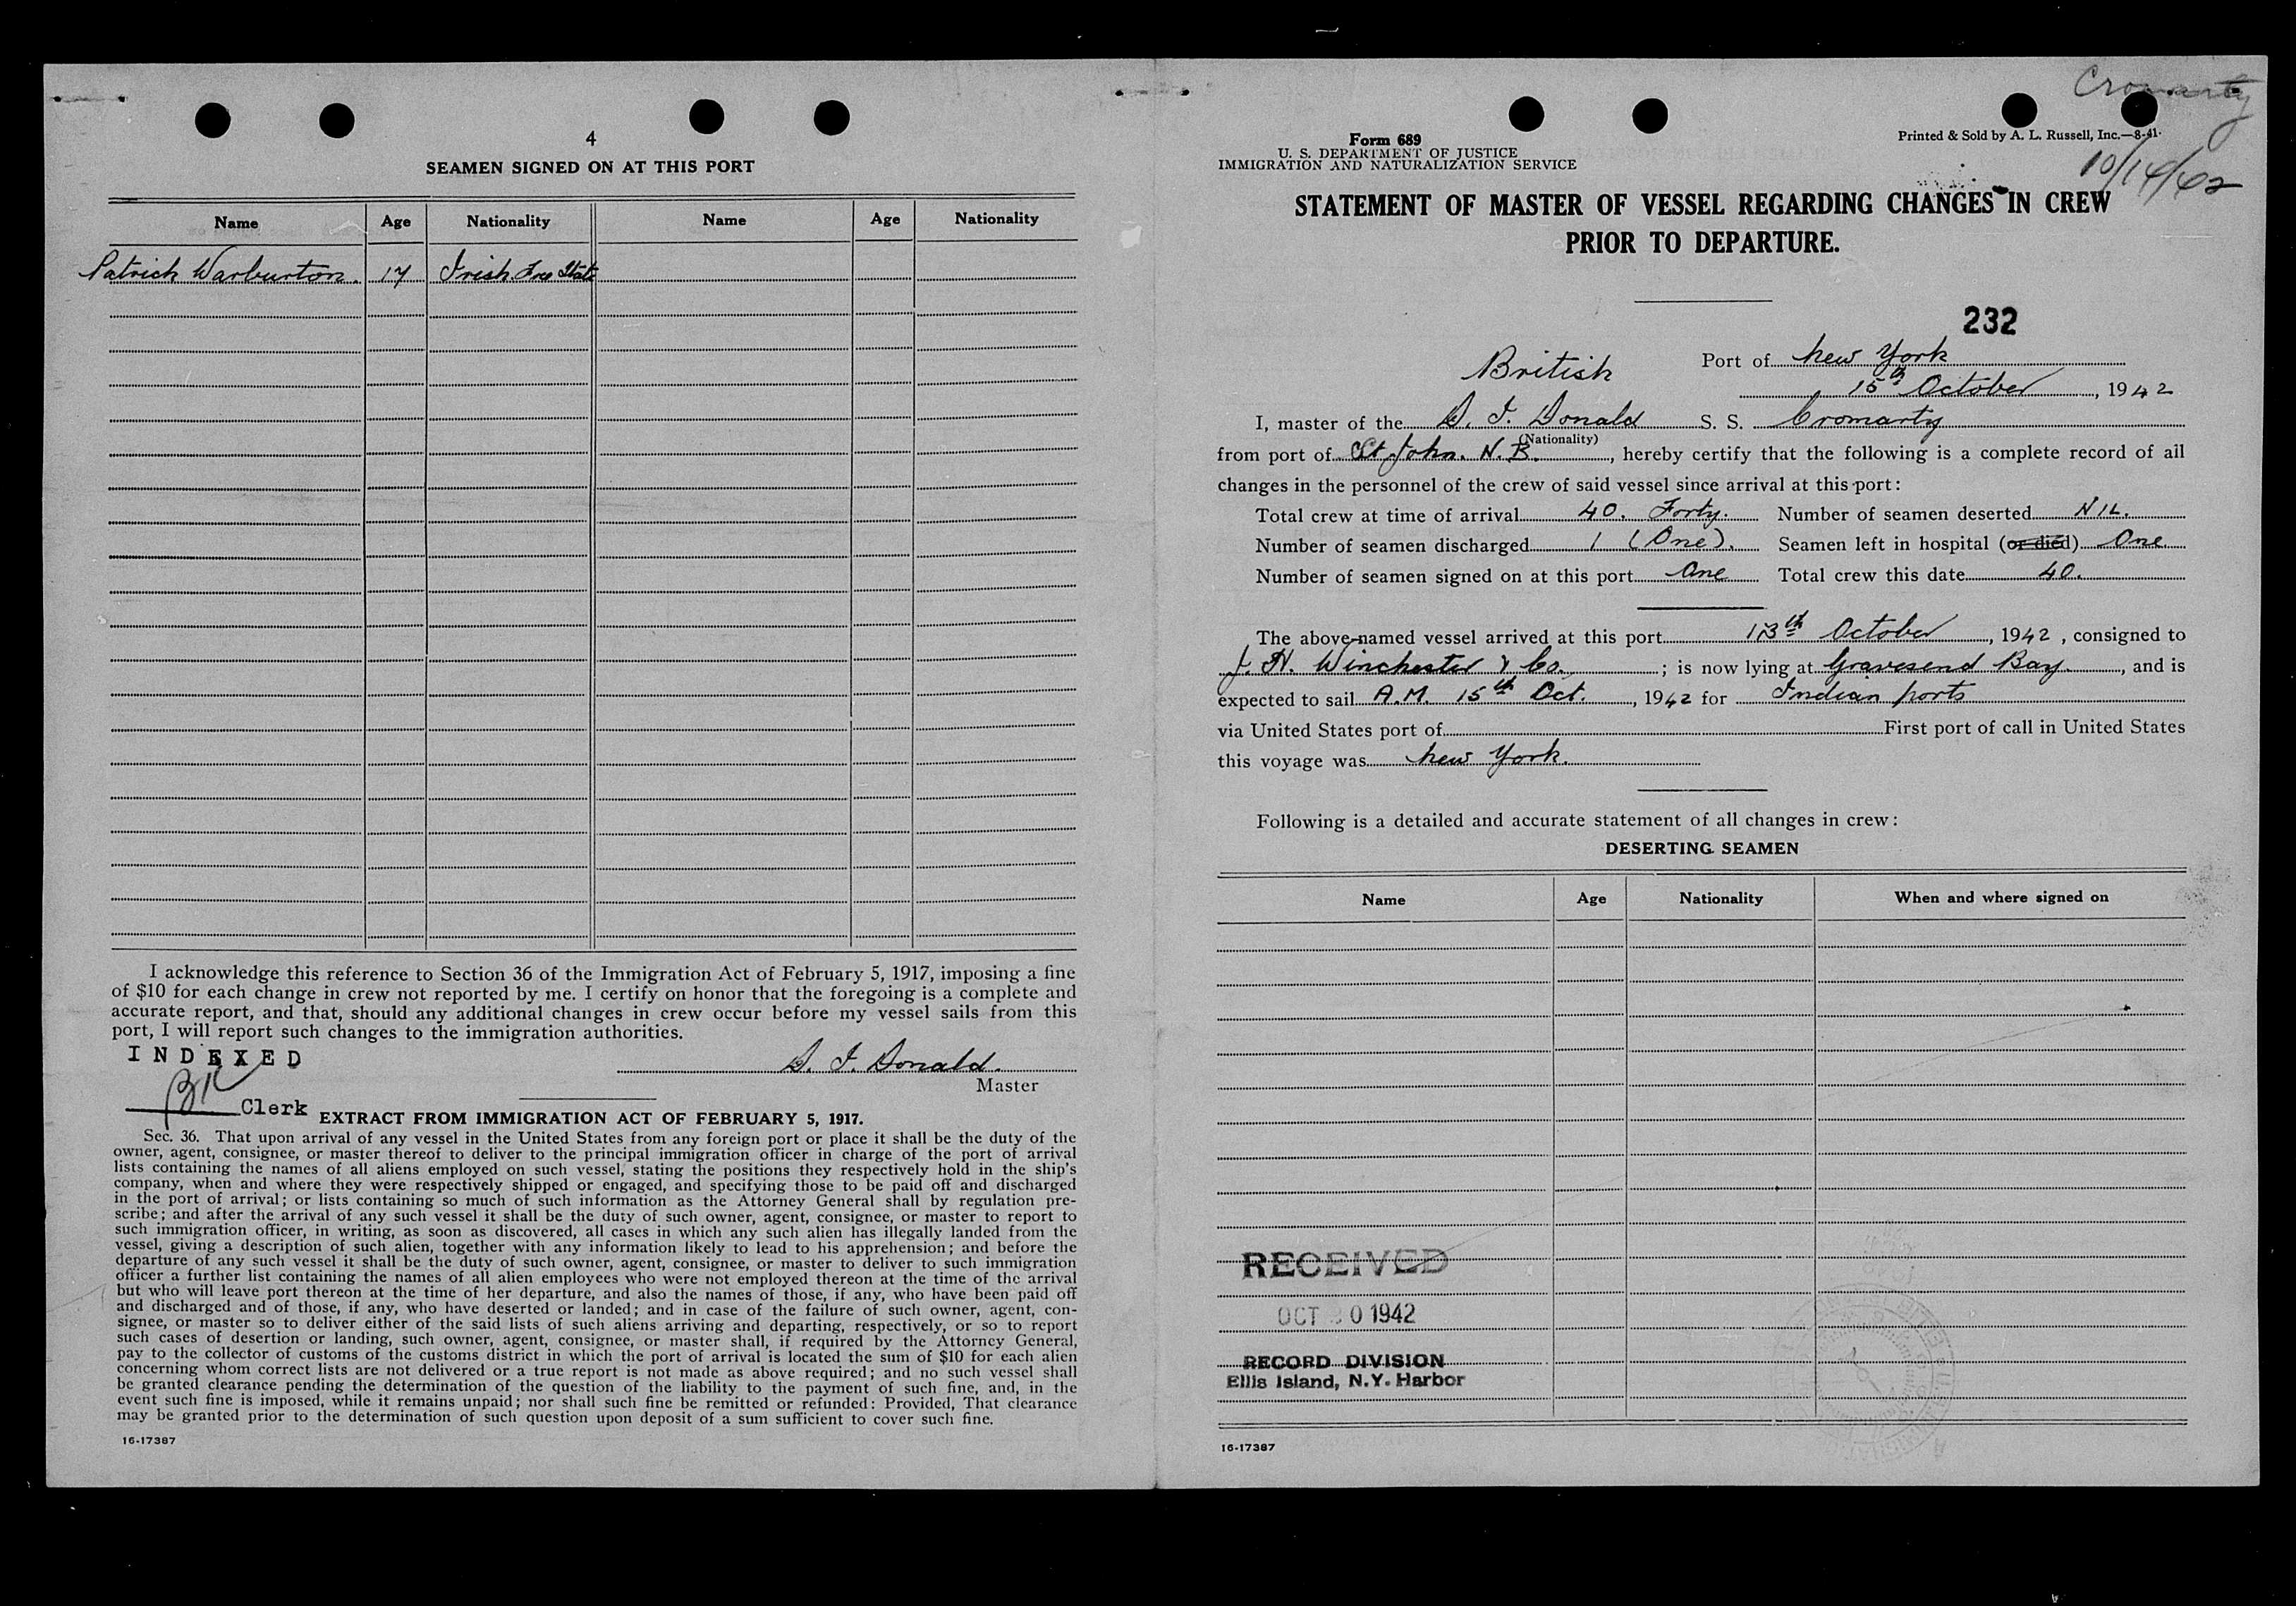 4
SEAMEN SIGNED ON AT THIS PORT
Name Age Nationality Name Age Nationality
Patrick Warburton. 17 Irish Free State
I acknowledge this reference to Section 36 of the Immigration Act of February 5, 1917, imposing a fine
of $10 for each change in crew not reported by me. I certify on honor that the foregoing is a complete and
accurate report, and that, should any additional changes in crew occur before my vessel sails from this
port, I will report such changes to the immigration authorities.
INDEXED
D. I. Donald.
Master
Clerk
EXTRACT FROM IMMIGRATION ACT OF FEBRUARY 5, 1917.
Sec. 36. That upon arrival of any vessel in the United States from any foreign port or place it shall be the duty of the
owner, agent, consignee, or master thereof to deliver to the principal immigration officer in charge of the port of arrival
lists containing the names of all aliens employed on such vessel, stating the positions they respectively hold in the ship's
company, when and where they were respectively shipped or engaged, and specifying those to be paid off and discharged
in the port of arrival; or lists containing so much of such information as the Attorney General shall by regulation pre-
scribe; and after the arrival of any such vessel it shall be the duty of such owner, agent, consignee, or master to report to
such immigration officer, in writing, as soon as discovered, all cases in which any such alien has illegally landed from the
vessel, giving a description of such alien, together with any information likely to lead to his apprehension; and before the
departure of any such vessel it shall be the duty of such owner, agent, consignee, or master to deliver to such immigration
officer a further list containing the names of all alien employees who were not employed thereon at the time of the arrival
but who will leave port thereon at the time of her departure, and also the names of those, if any, who have been paid off
and discharged and of those, if any, who have deserted or landed; and in case of the failure of such owner, agent, con-
signee, or master so to deliver either of the said lists of such aliens arriving and departing, respectively, or so to report
such cases of desertion or landing, such owner, agent, consignee, or master shall, if required by the Attorney General,
pay to the collector of customs of the customs district in which the port of arrival is located the sum of $10 for each alien
concerning whom correct lists are not delivered or a true report is not made as above required; and no such vessel shall
be granted clearance pending the determination of the question of the liability to the payment of such fine, and, in the
event such fine is imposed, while it remains unpaid; nor shall such fine be remitted or refunded: Provided, That clearance
may be granted prior to the determination of such question upon deposit of a sum sufficient to cover such fine.
16-17387
Cromarty
Form 689
U. S. DEPARTMENT OF JUSTICE
IMMIGRATION AND NATURALIZATION SERVICE
Printed & Sold by A. L. Russell, Inc.—8-41.
10/14/42
STATEMENT OF MASTER OF VESSEL REGARDING CHANGES IN CREW
PRIOR TO DEPARTURE.
232
British Port of New York
15th October, 1942
I, master of the D. I. Donald S. S. Cromarty
(Nationality)
from port of St John. N. B., hereby certify that the following is a complete record of all
changes in the personnel of the crew of said vessel since arrival at this port:
Total crew at time of arrival 40. Forty. Number of seamen deserted NIL.
Number of seamen discharged 1 (One). Seamen left in hospital (or died) One
Number of seamen signed on at this port One Total crew this date 40.
The above-named vessel arrived at this port 13th October, 1942, consigned to
J. H. Winchester & Co.; is now lying at Gravesend Bay, and is
expected to sail A.M. 15th Oct., 1942 for Indian ports
via United States port of First port of call in United States
this voyage was New York.
Following is a detailed and accurate statement of all changes in crew:
DESERTING SEAMEN
Name Age Nationality When and where signed on
RECEIVED
OCT 0 1942
RECORD DIVISION
Ellis Island, N.Y. Harbor
16-17387